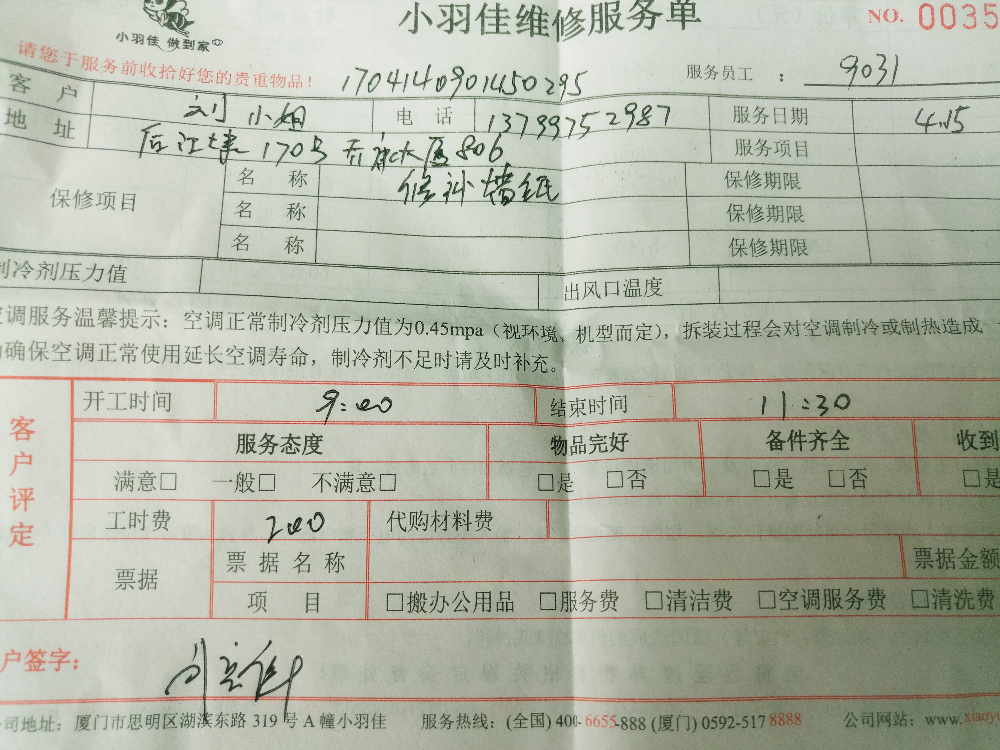 小羽佳 做到家
小羽佳维修服务单
NO. 0035
请您于服务前收拾好您的贵重物品！
1704140901450295
服务员工 : 9031
客 户 刘小姐 电 话 13799752987 服务日期 4.15
地 址 后江埭170号 大厦806 服务项目
保修项目 名 称 修补墙纸 保修期限
名 称 保修期限
名 称 保修期限
制冷剂压力值 出风口温度
空调服务温馨提示：空调正常制冷剂压力值为0.45mpa（视环境、机型而定），拆装过程会对空调制冷或制热造成
确保空调正常使用延长空调寿命，制冷剂不足时请及时补充。
客户评定
开工时间 9:00 结束时间 11:30
服务态度 物品完好 备件齐全 收到
满意□ 一般□ 不满意□ □是 □否 □是 □否 □是
工时费 200 代购材料费
票据 票 据 名 称 票据金额
项 目 □搬办公用品 □服务费 □清洁费 □空调服务费 □清洗费
户签字：
司地址：厦门市思明区湖滨东路 319 号 A 幢小羽佳 服务热线：(全国) 400-6655-888 (厦门) 0592-5178888 公司网站：www.xiaoyu